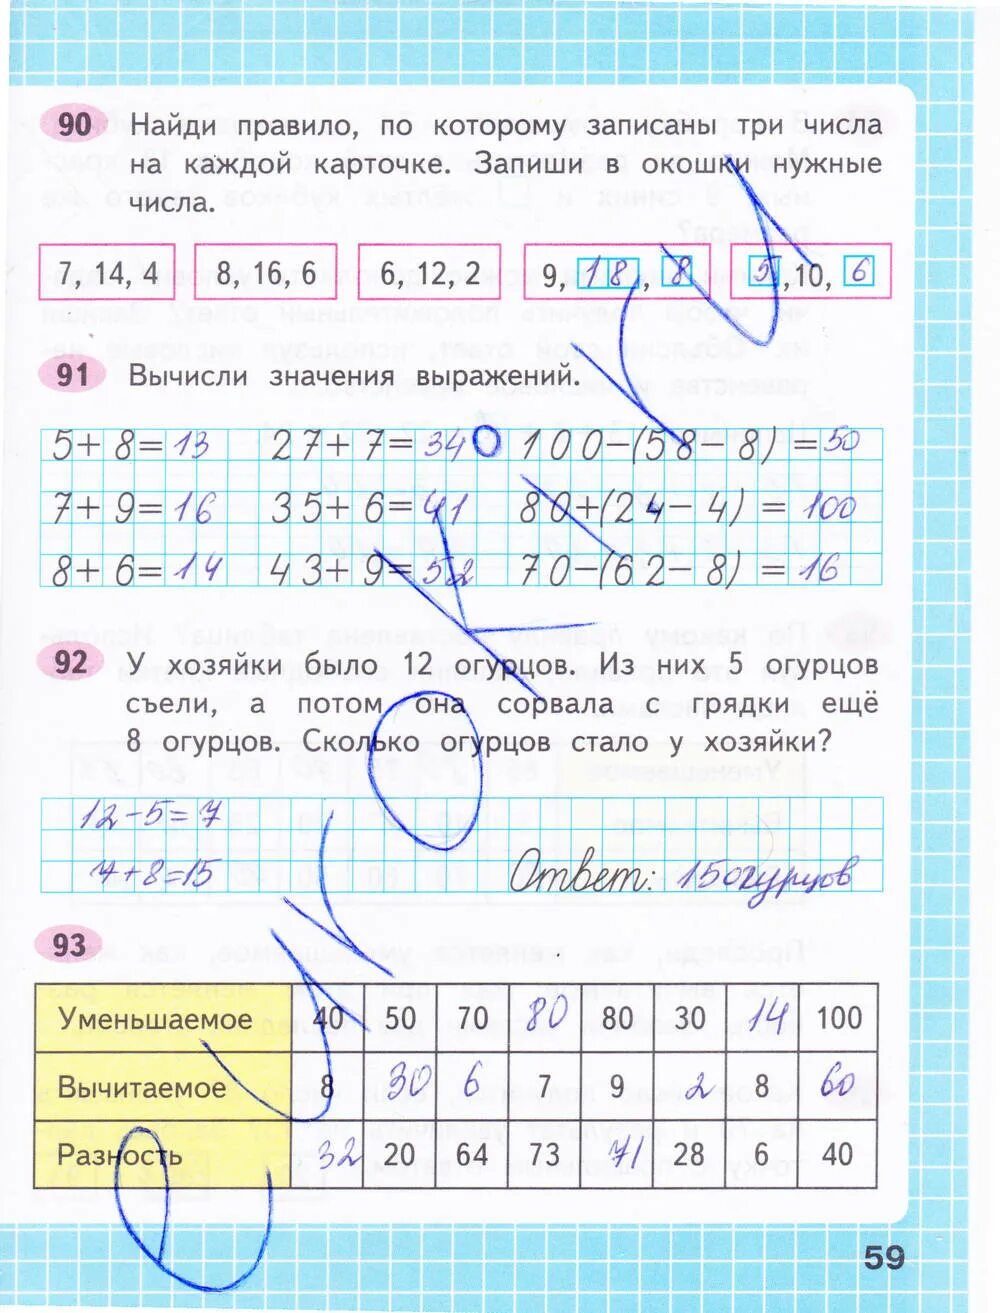 90 Найди правило, по которому записаны три числа
на каждой карточке. Запиши в окошки нужные
числа.
7, 14, 4   8, 16, 6   6, 12, 2   9, 18, 8   5, 10, 6
91 Вычисли значения выражений.
5+8=13   27+7=34   100-(58-8)=50
7+9=16   35+6=41   80+(24-4)=100
8+6=14   43+9=52   70-(62-8)=16
92 У хозяйки было 12 огурцов. Из них 5 огурцов
съели, а потом она сорвала с грядки ещё
8 огурцов. Сколько огурцов стало у хозяйки?
12-5=7
7+8=15   Ответ: 15 огурцов
93
Уменьшаемое 40 50 70 80 80 30 14 100
Вычитаемое 8 30 6 7 9 2 8 60
Разность 32 20 64 73 71 28 6 40
59